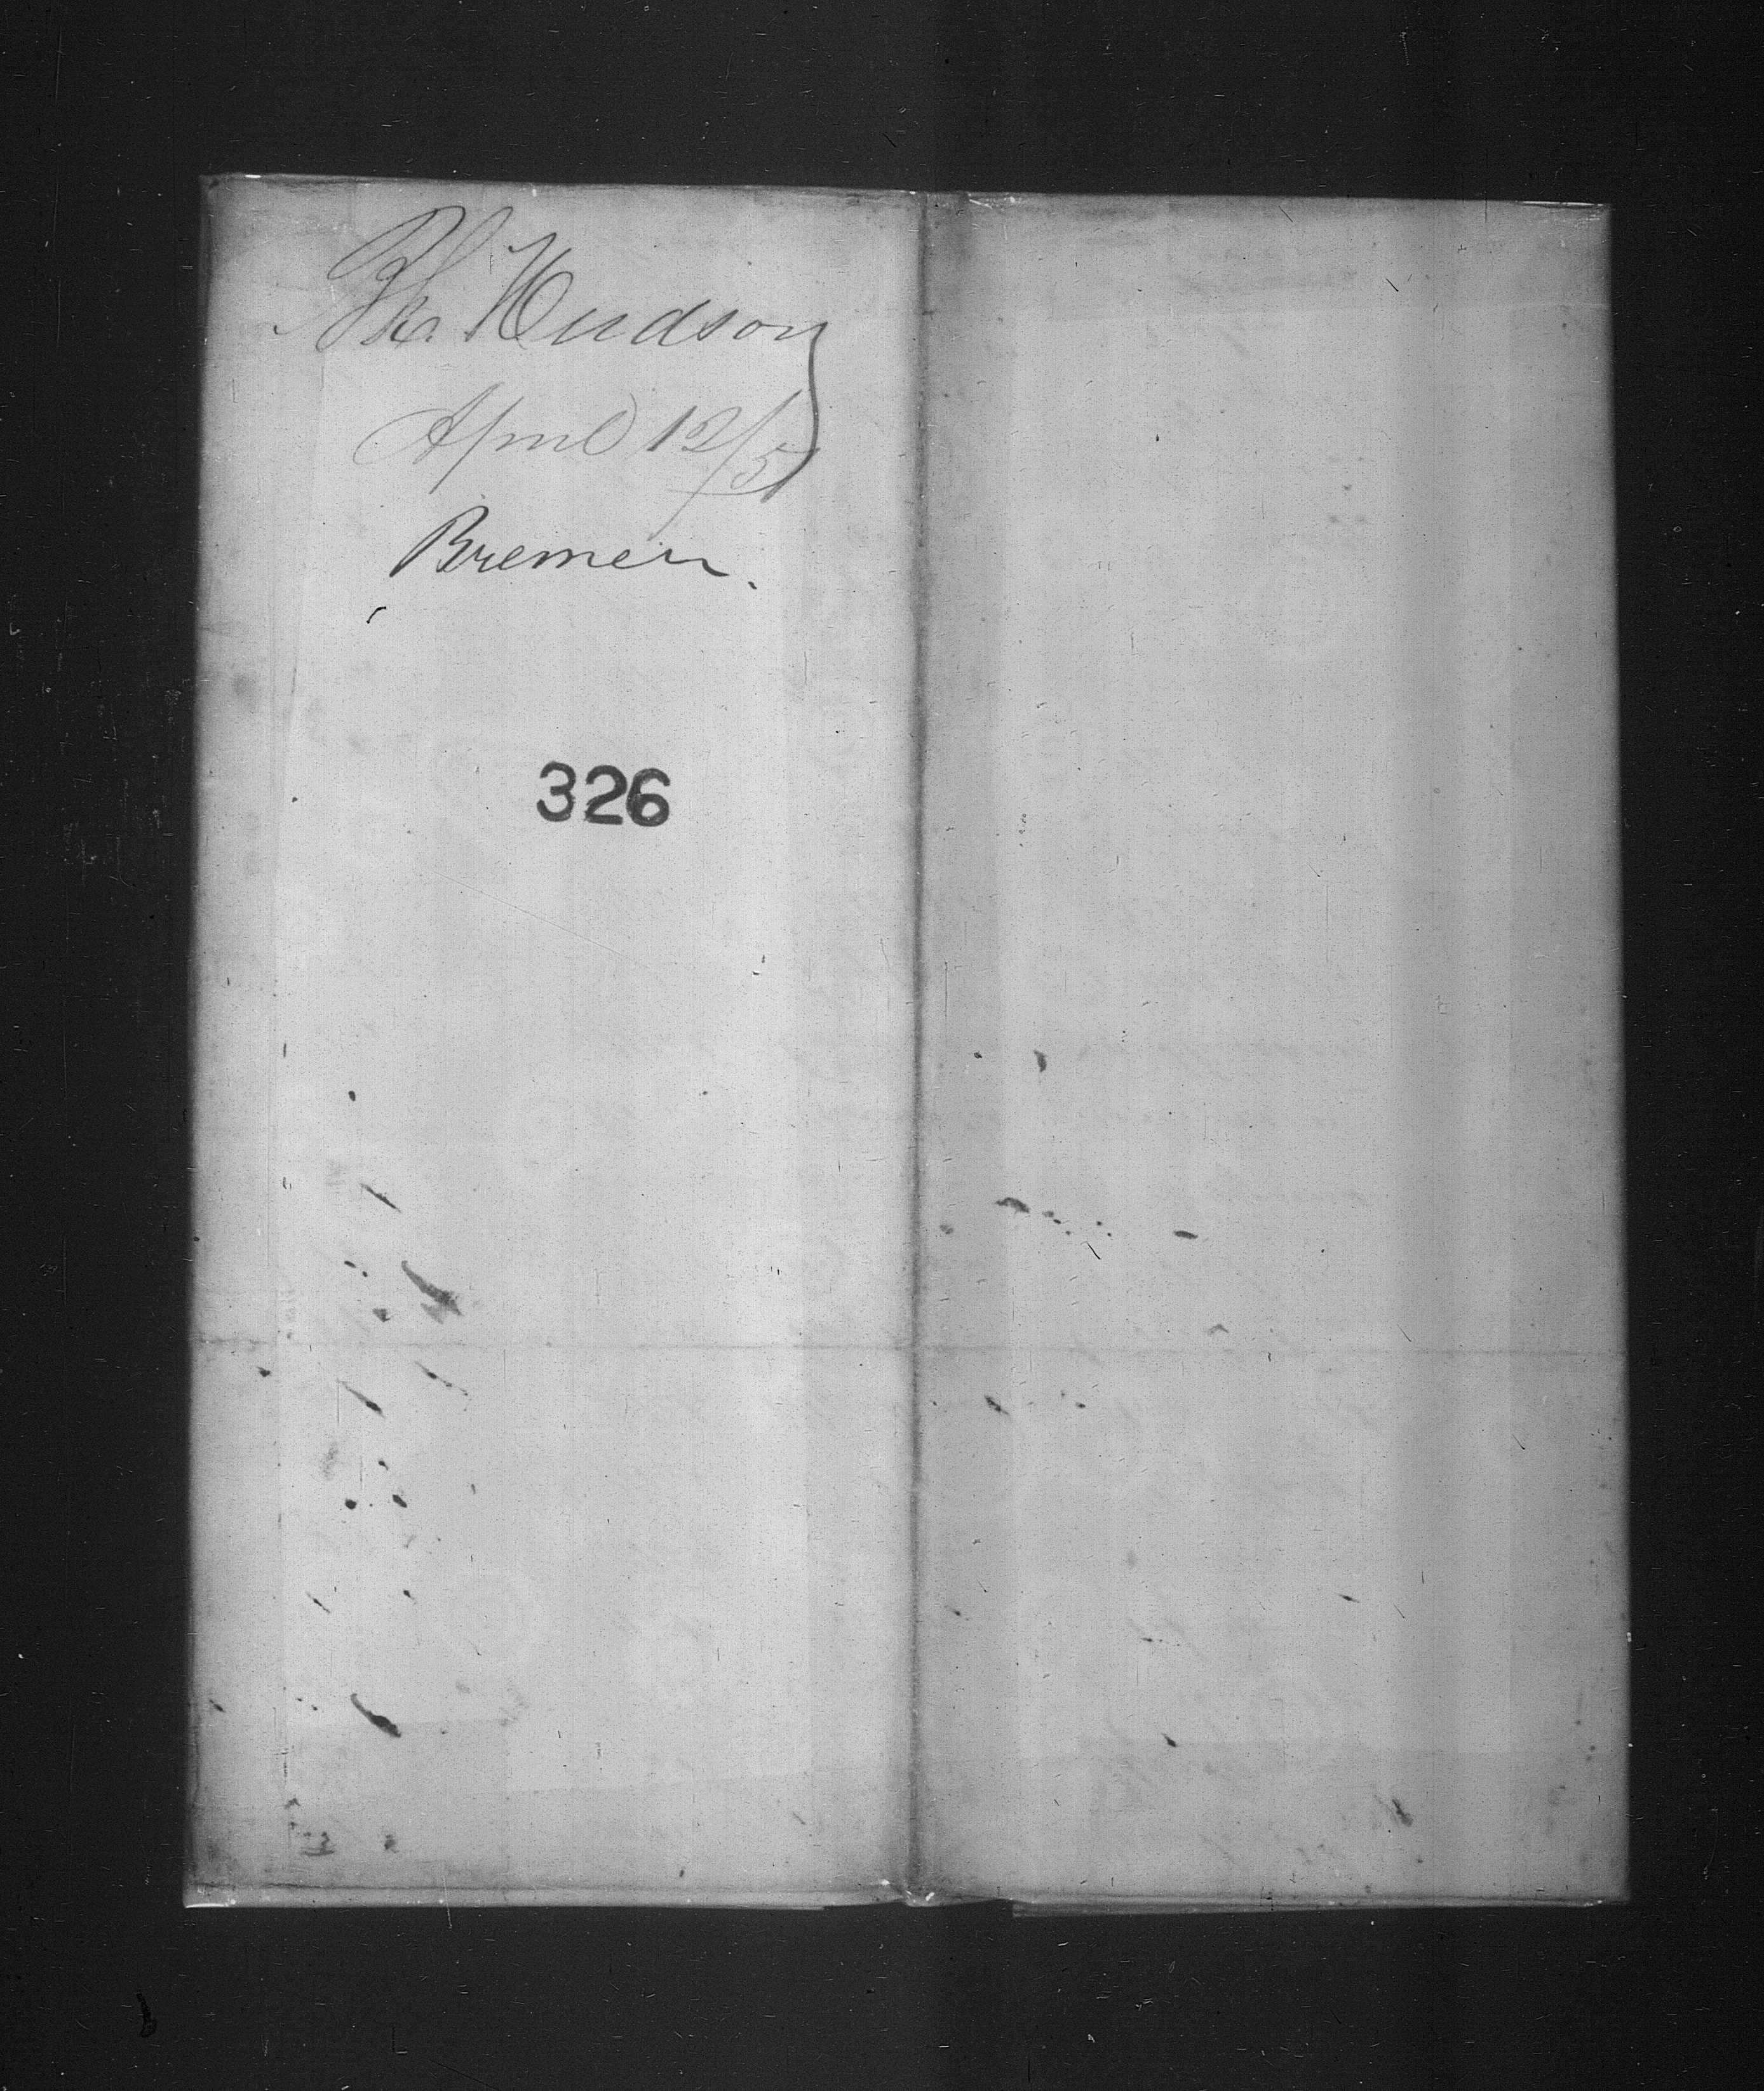 Sh. Hudson
April 12/51
Bremen.
326